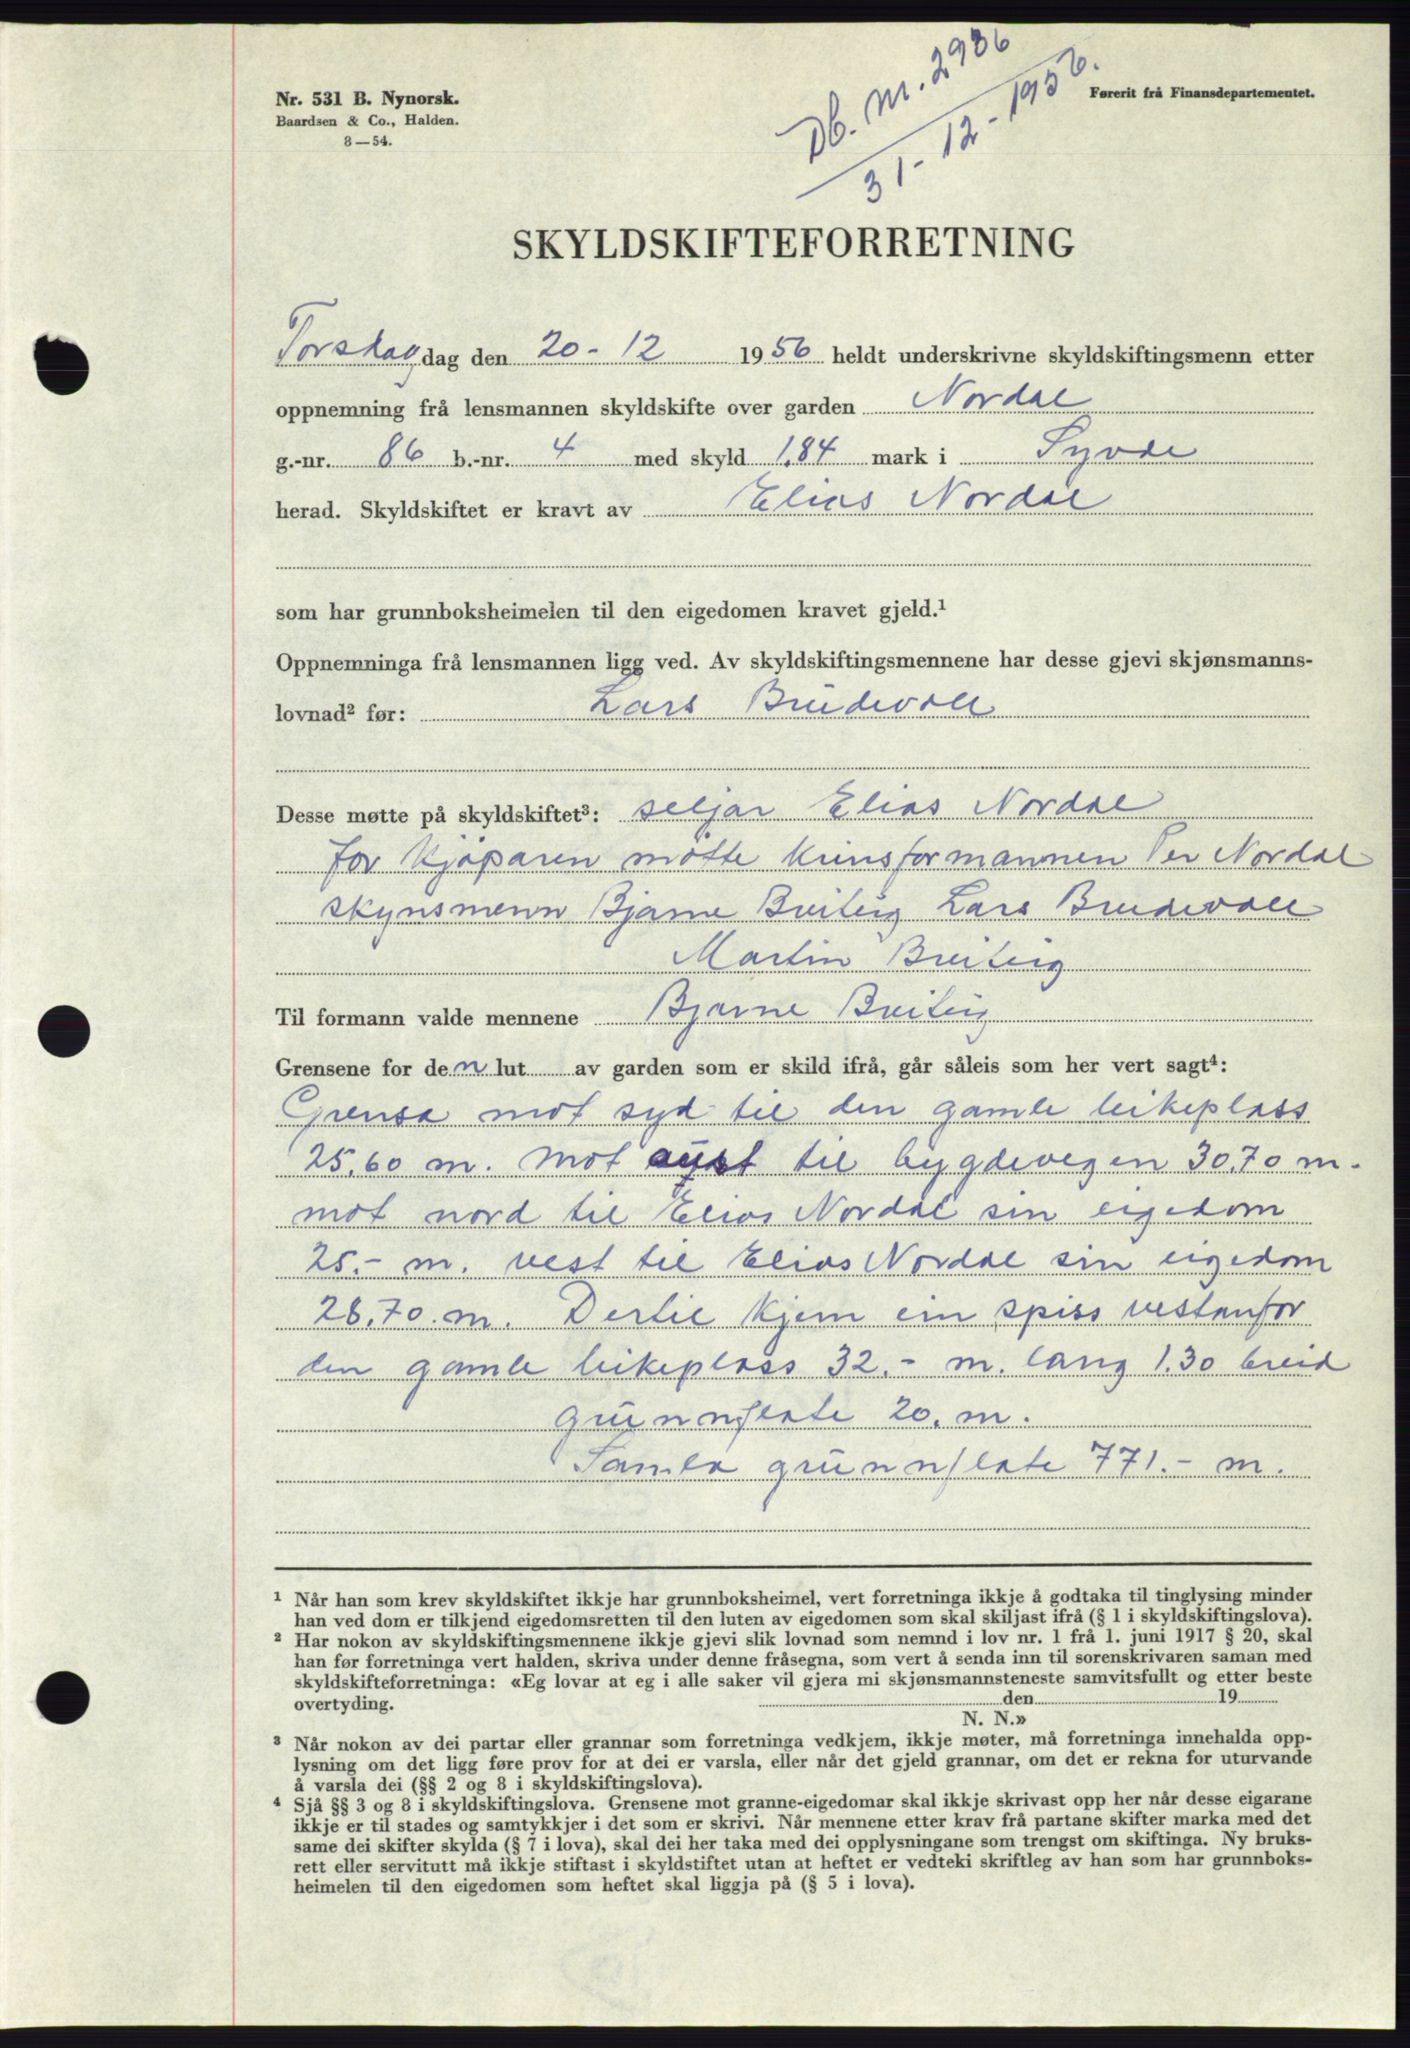 Db. nr. 2936
31-12-1956.
Nr. 531 B. Nynorsk.
Baardsen & Co., Halden.
8—54.
Førerit frå Finansdepartementet.
SKYLDSKIFTEFORRETNING
Torsdag dag den 20-12 1956 heldt underskrivne skyldskiftingsmenn etter
oppnemning frå lensmannen skyldskifte over garden Nordal
g.-nr. 86 b.-nr. 4 med skyld 1,84 mark i Syvde
herad. Skyldskiftet er kravt av Elias Nordal
som har grunnboksheimelen til den eigedomen kravet gjeld.¹
Oppnemninga frå lensmannen ligg ved. Av skyldskiftingsmennene har desse gjevi skjønsmanns-
lovnad² før: Lars Brudevoll
Desse møtte på skyldskiftet³: seljar Elias Nordal
for kjöparen mötte krinsformannen Per Nordal
skynsmenn Bjarne Breiteig Lars Brudevoll
Martin Breiteig
Til formann valde mennene Bjarne Breiteig
Grensene for den lut av garden som er skild ifrå, går såleis som her vert sagt⁴:
Grensa mot syd til den gamle leikeplass
25,60 m. mot aust til bygdevegen 30,70 m.
mot nord til Elias Nordal sin eigedom
25.- m. vest til Elias Nordal sin eigedom
28,70 m. Dertil kjem ein spiss vestanfor
den gamle leikeplass 32.- m. lang 1.30 breid
grunnflate 20. m.
Samla grunnflate 771.- m.
¹ Når han som krev skyldskiftet ikkje har grunnboksheimel, vert forretninga ikkje å godtaka til tinglysing minder
han ved dom er tilkjend eigedomsretten til den luten av eigedomen som skal skiljast ifrå (§ 1 i skyldskiftingslova).
² Har nokon av skyldskiftingsmennene ikkje gjevi slik lovnad som nemnd i lov nr. 1 frå 1. juni 1917 § 20, skal
han før forretninga vert halden, skriva under denne fråsegna, som vert å senda inn til sorenskrivaren saman med
skyldskifteforretninga: «Eg lovar at eg i alle saker vil gjera mi skjønsmannsteneste samvitsfullt og etter beste
overtyding. den 19
N. N.»
³ Når nokon av dei partar eller grannar som forretninga vedkjem, ikkje møter, må forretninga innehalda opp-
lysning om det ligg føre prov for at dei er varsla, eller når det gjeld grannar, om det er rekna for uturvande
å varsla dei (§§ 2 og 8 i skyldskiftingslova).
⁴ Sjå §§ 3 og 8 i skyldskiftingslova. Grensene mot granne-eigedomar skal ikkje skrivast opp her når desse eigarane
ikkje er til stades og samtykkjer i det som er skrivi. Når mennene etter krav frå partane skifter marka med det
same dei skifter skylda (§ 7 i lova), skal dei her taka med dei opplysningane som trengst om skiftinga. Ny bruks-
rett eller servitutt må ikkje stiftast i skyldstiftet utan at heftet er vedteki skriftleg av han som har grunnboks-
heimelen til den eigedomen som heftet skal liggja på (§ 5 i lova).